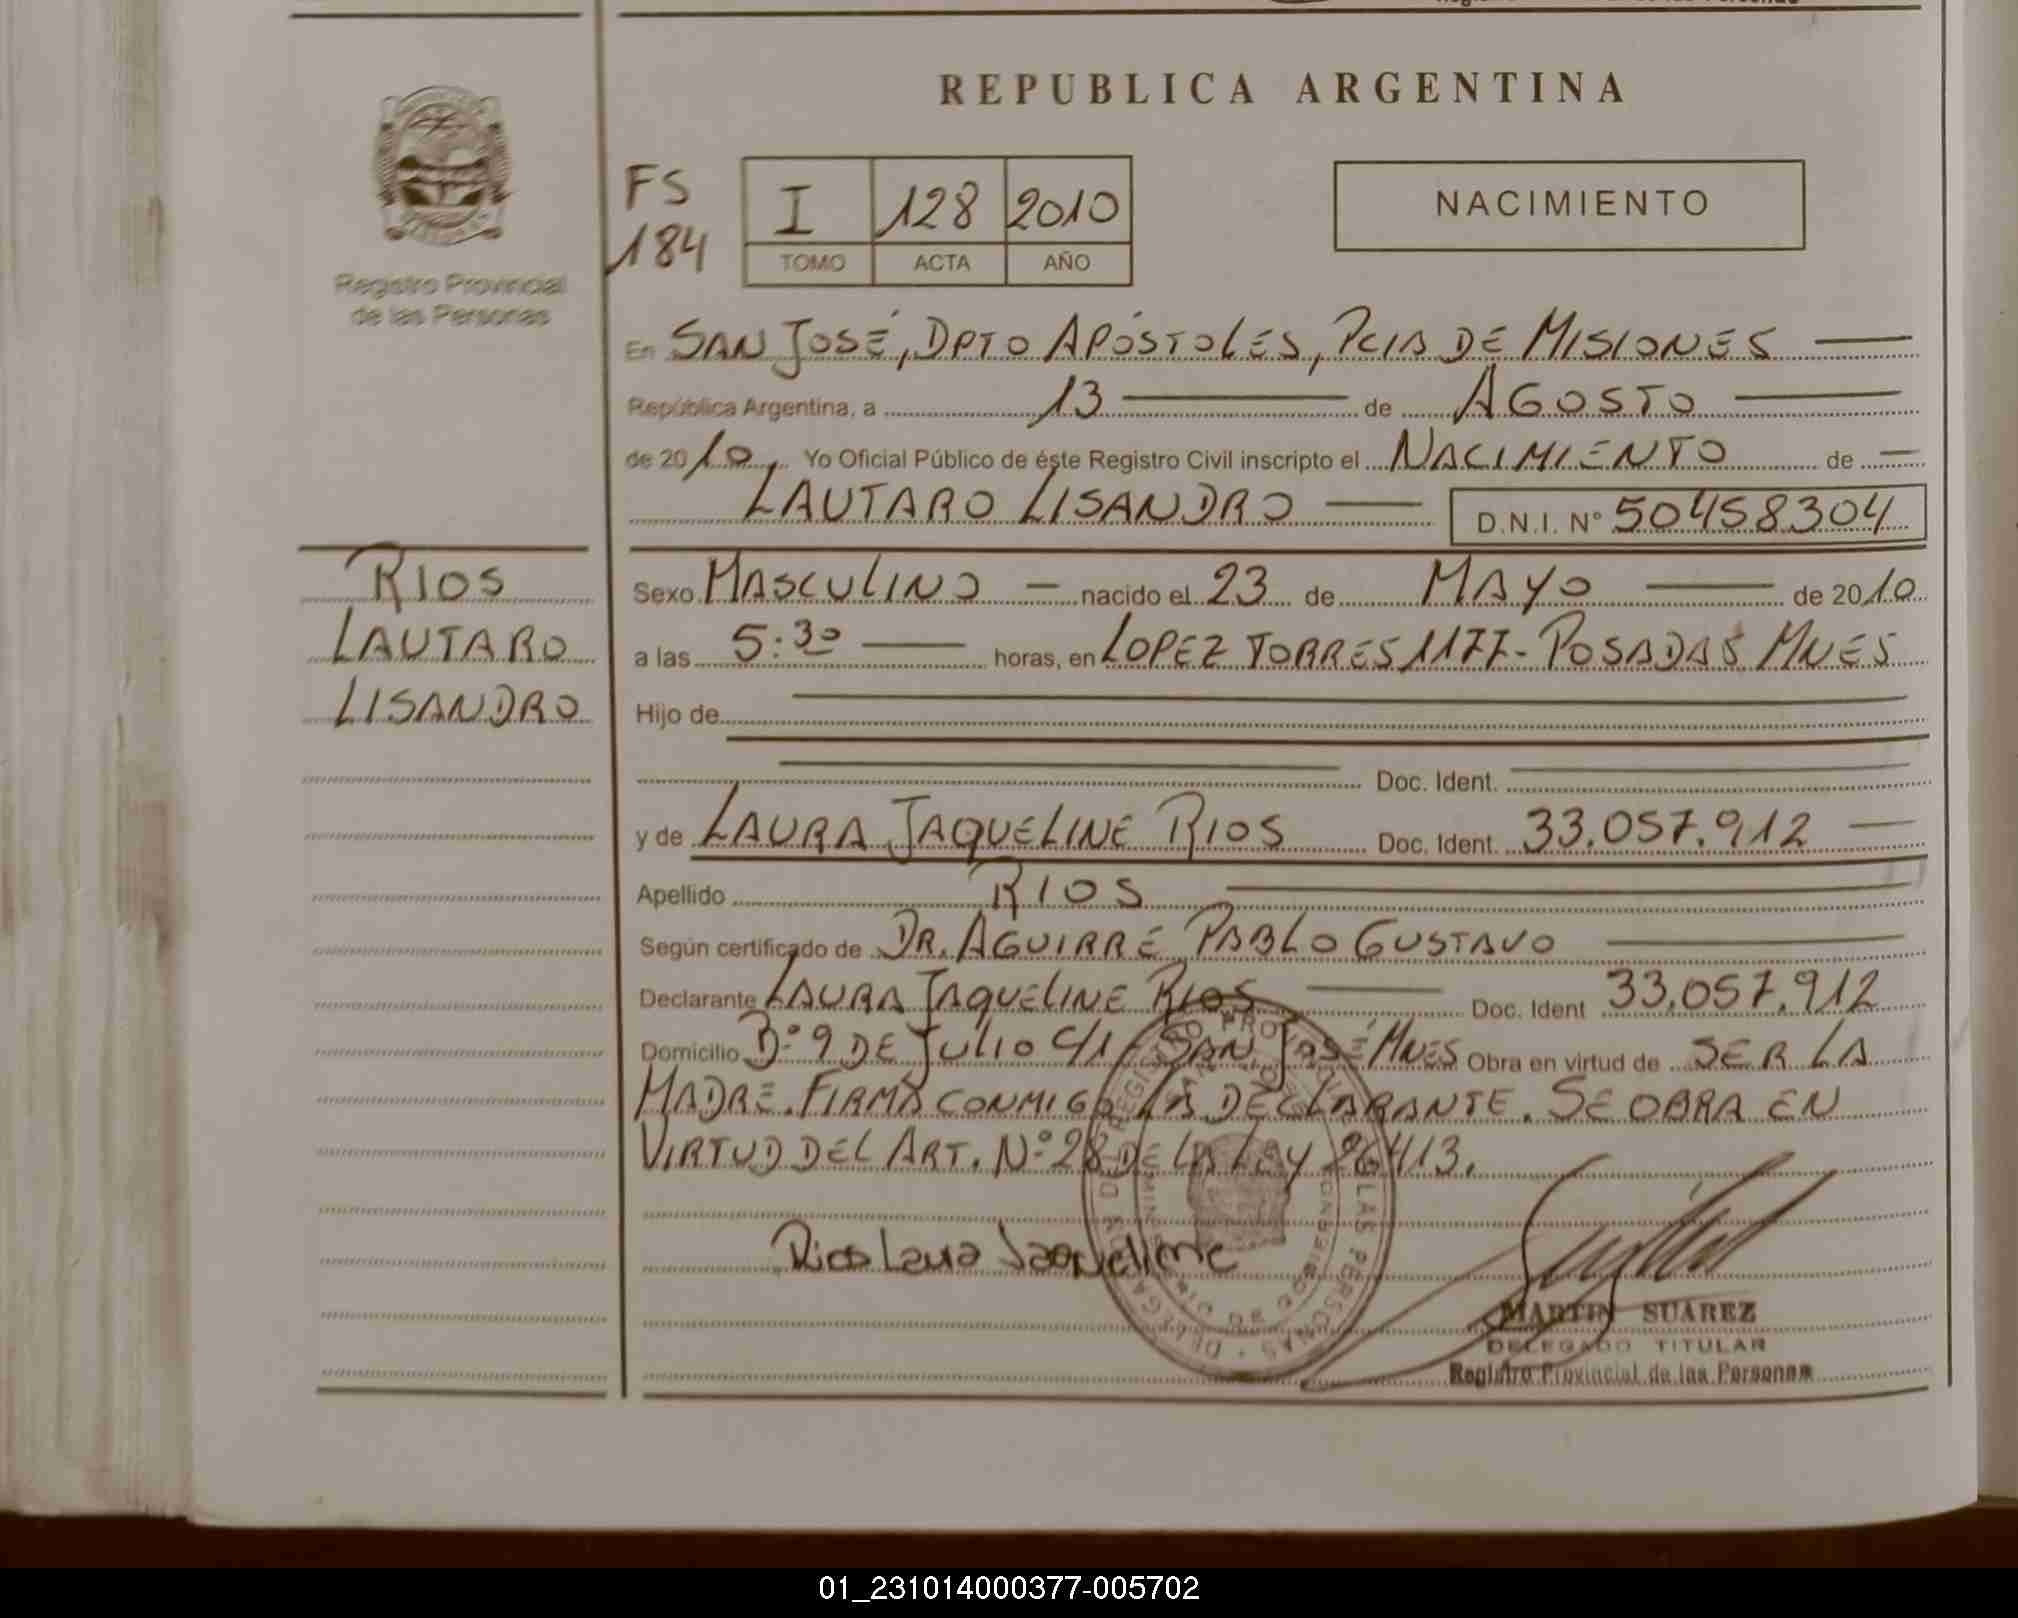 REPUBLICA ARGENTINA
Registro Provincial
de las Personas
FS
184
I 128 2010
TOMO ACTA AÑO
NACIMIENTO
En SAN JOSÉ, DPTO APÓSTOLES, PCIA DE MISIONES
República Argentina, a 13 de AGOSTO
de 2010 Yo Oficial Público de éste Registro Civil inscripto el NACIMIENTO de
LAUTARO LISANDRO D.N.I. N° 50458304
RIOS
LAUTARO
LISANDRO
Sexo MASCULINO nacido el 23 de MAYO de 2010
a las 5:30 horas, en LOPEZ TORRES 1177 - POSADAS MNES
Hijo de
Doc. Ident.
y de LAURA JAQUELINE RIOS Doc. Ident. 33.057.912
Apellido RIOS
Según certificado de DR. AGUIRRE PABLO GUSTAVO
Declarante LAURA JAQUELINE RIOS Doc. Ident 33.057.912
Domicilio B° 9 DE JULIO C/1 - SAN JOSÉ MNES Obra en virtud de SER LA
MADRE. FIRMA CONMIGO LA DECLARANTE. SE OBRA EN
VIRTUD DEL ART. N° 28 DE LA LEY 26413.
Rios Laura Jaqueline
MARTIN SUAREZ
DELEGADO TITULAR
Registro Provincial de las Personas
01_231014000377-005702